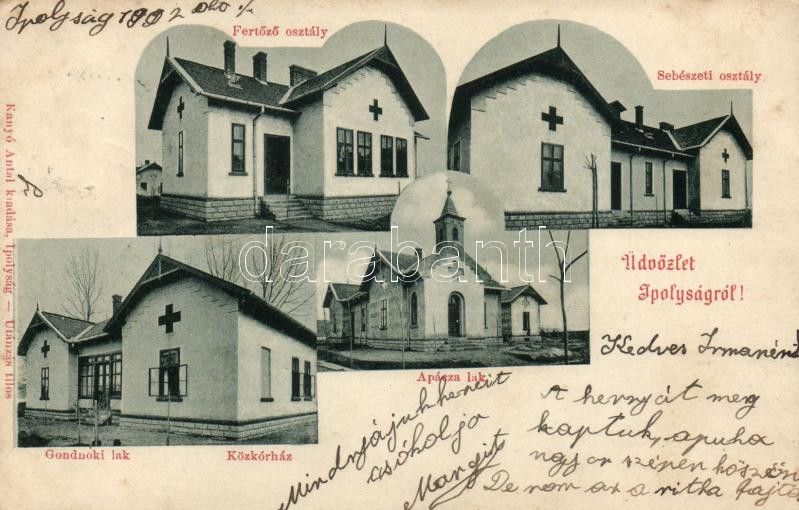 Ipolyság 1902 okt
Fertőző osztály
Sebészeti osztály
Kanyó Antal kiadása, Ipolyság — Utánzás tilos
darabanth
Üdvözlet
Ipolyságról!
Kedves Irmanéni
Apácza lak
Gondnoki lak
Közkórház
A hernyót meg
kaptuk, apuka
szépen köszöni
De nem az a ritka fajta
csókolja
Margit